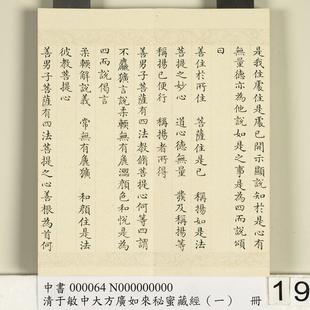 是我住處住是處已開示顯說知於是心有
無量德亦為他說如是之事是為四而說頌
曰
善住於所住　菩薩住是已　稱揚如是法
菩提之妙心　道心德無量　發及稱揚等
稱揚已便行　稱揚者所得
善男子菩薩有四法教餚菩提心何等四謂
不麤獷言說柔軟無有麁澀顏色和悅是為
四而說偈言
柔軟解說義　常無有麁獷　和顏住是法
彼教菩提心
善男子菩薩有四法菩提之心善根為首何
中書 000064 N000000000
清于敏中大方廣如來秘蜜藏經（一）　冊
19